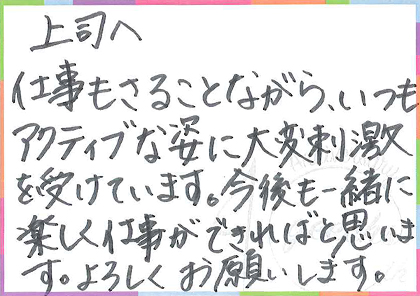 上司へ
仕事もさることながら、いつも
アクティブな姿に大変刺激
を受けています。今後も一緒に
楽しく仕事ができればと思いま
す。よろしくお願いします。